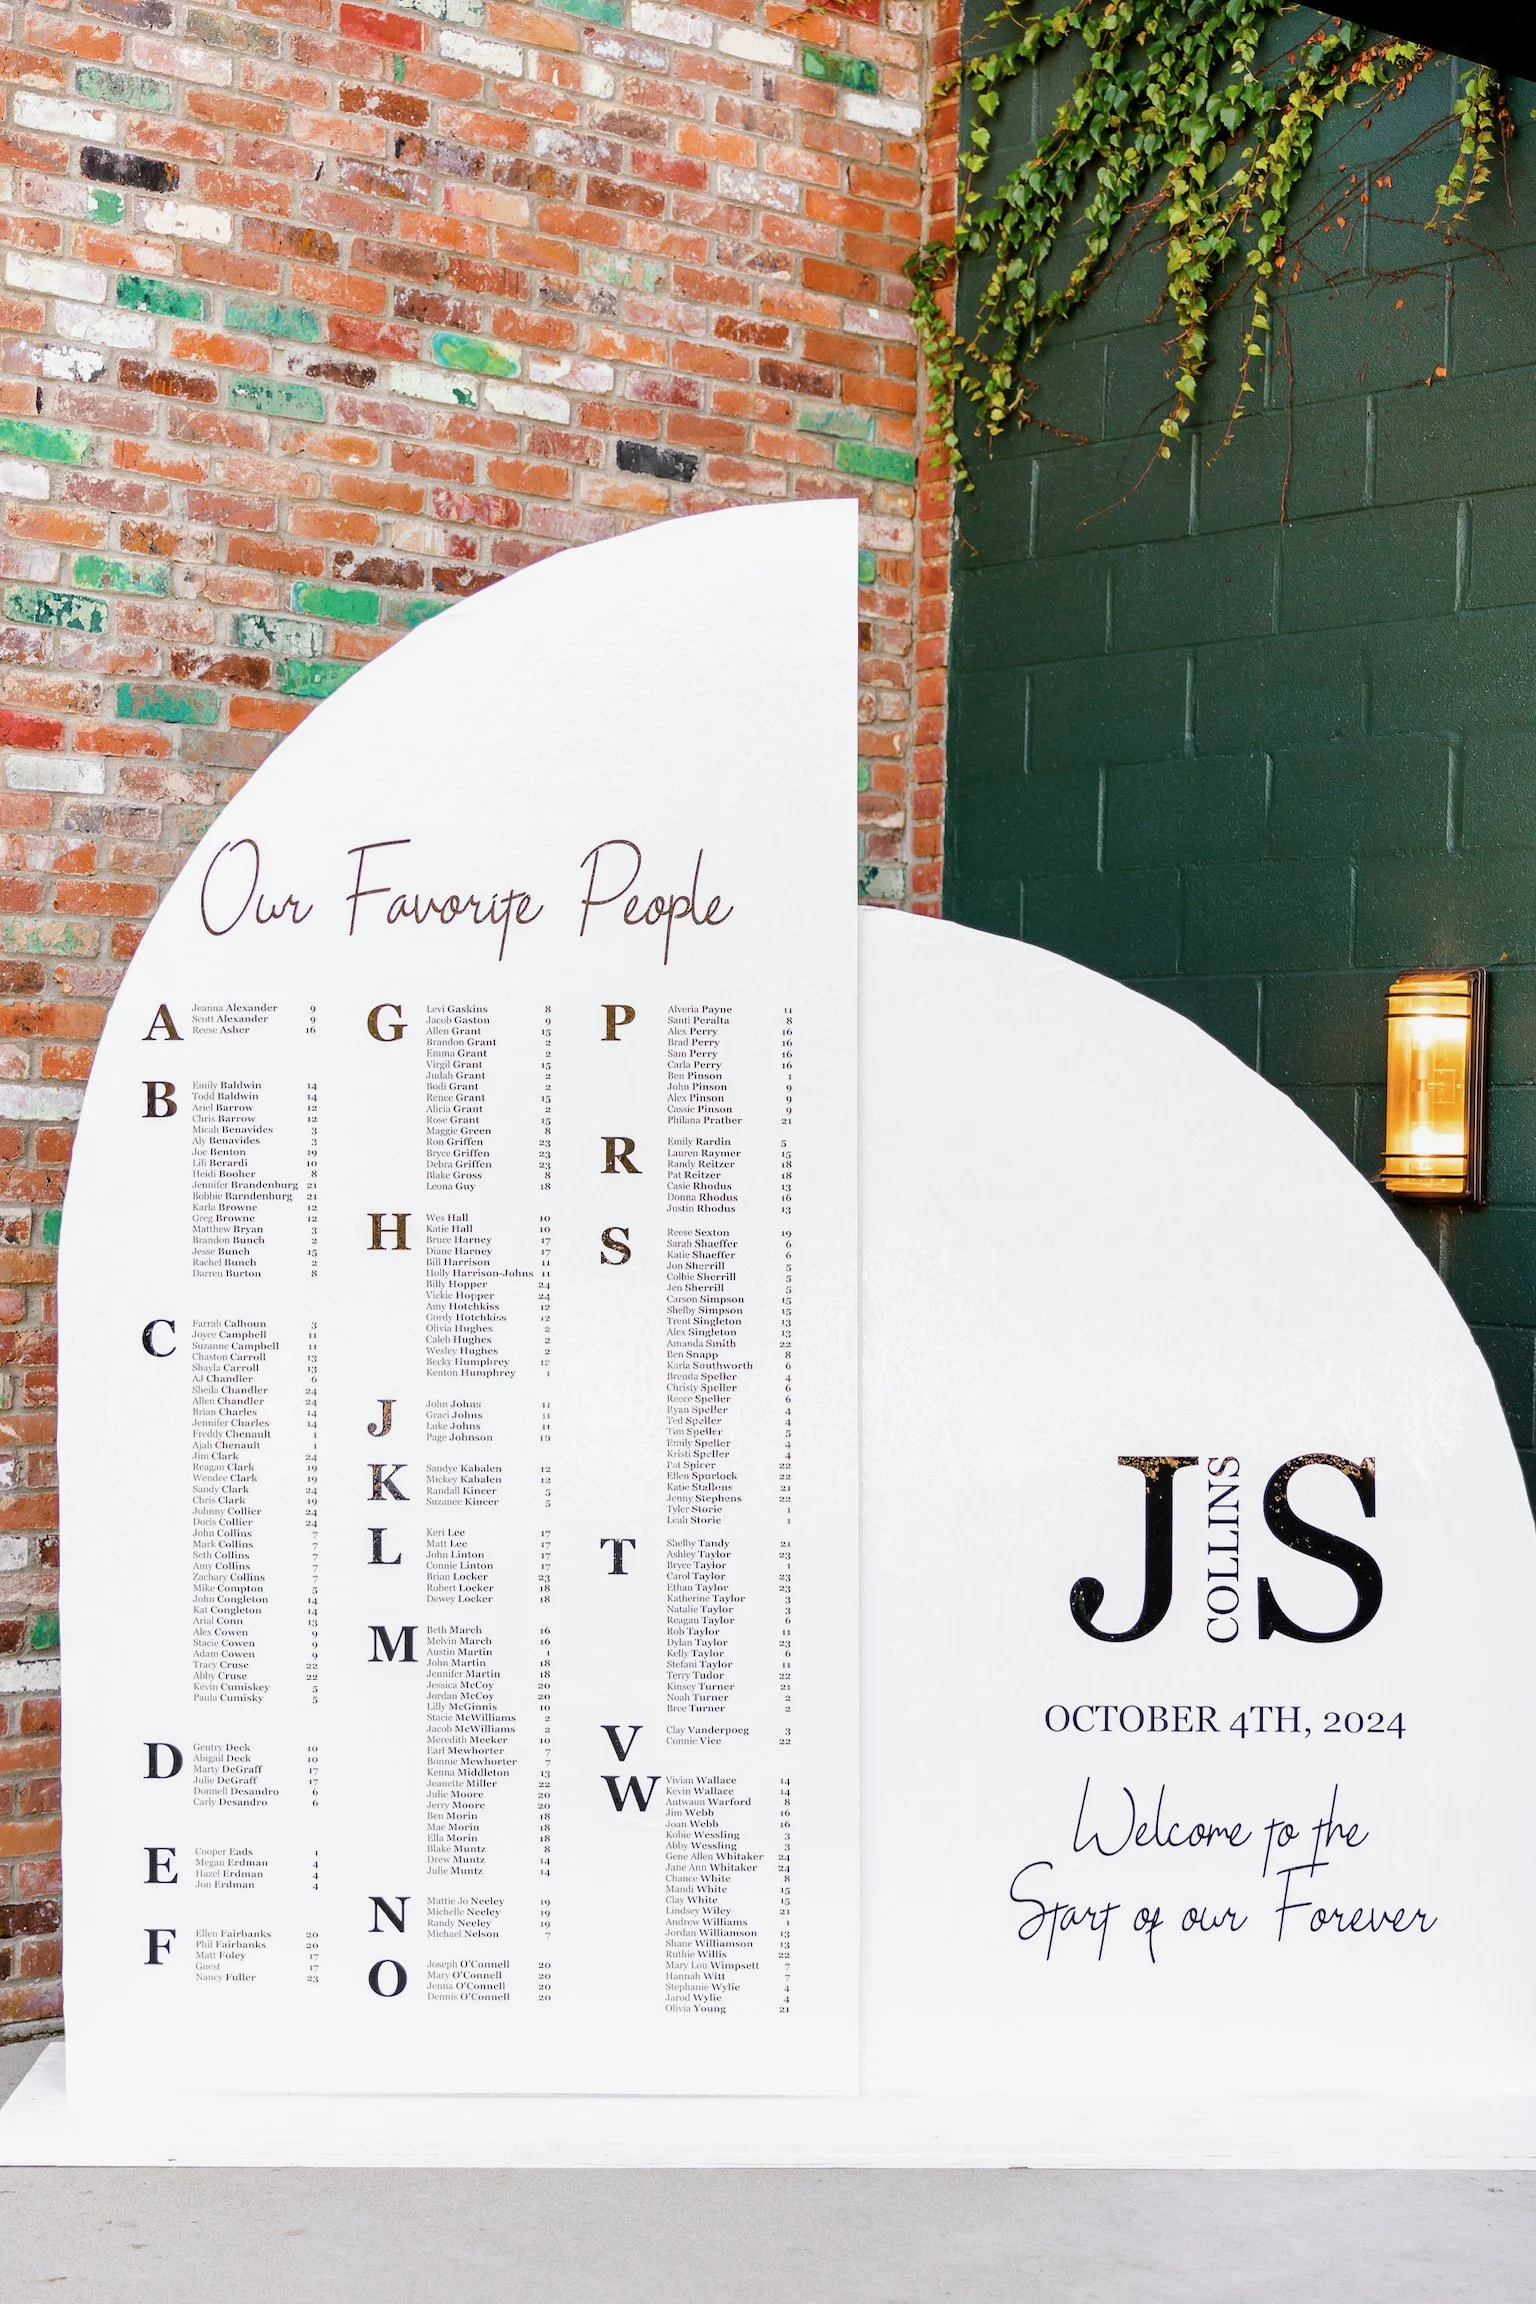 Our Favorite People
A
Jeanna Alexander 9
Scott Alexander 9
Reese Asher 16
B
Emily Baldwin 14
Todd Baldwin 14
Ariel Barrow 12
Chris Barrow 12
Micah Benavides 3
Aly Benavides 3
Joe Benton 19
Lili Berardi 10
Heidi Booher 8
Jennifer Brandenburg 21
Bobbie Barndenburg 21
Karla Browne 12
Greg Browne 12
Matthew Bryan 3
Brandon Bunch 2
Jesse Bunch 15
Rachel Bunch 2
Darren Burton 8
C
Farrah Calhoun 3
Joyce Campbell 11
Suzanne Campbell 11
Chaston Carroll 13
Shayla Carroll 13
AJ Chandler 6
Sheila Chandler 24
Allen Chandler 24
Brian Charles 14
Jennifer Charles 14
Freddy Chenault 1
Ajah Chenault 1
Jim Clark 24
Reagan Clark 19
Wendee Clark 19
Sandy Clark 24
Chris Clark 19
Johnny Collier 24
Doris Collier 24
John Collins 7
Mark Collins 7
Seth Collins 7
Amy Collins 7
Zachary Collins 7
Mike Compton 5
John Congleton 14
Kat Congleton 14
Arial Conn 13
Alex Cowen 9
Stacie Cowen 9
Adam Cowen 9
Tracy Cruse 22
Abby Cruse 22
Kevin Cumiskey 5
Paula Cumisky 5
D
Gentry Deck 10
Abigail Deck 10
Marty DeGraff 17
Julie DeGraff 17
Donnell Desandro 6
Carly Desandro 6
E
Cooper Eads 1
Megan Erdman 4
Hazel Erdman 4
Jon Erdman 4
F
Ellen Fairbanks 20
Phil Fairbanks 20
Matt Foley 17
Guest 17
Nancy Fuller 23
G
Levi Gaskins 8
Jacob Gaston 9
Allen Grant 15
Brandon Grant 2
Emma Grant 2
Virgil Grant 15
Judah Grant 2
Bodi Grant 2
Renee Grant 15
Alicia Grant 2
Rose Grant 15
Maggie Green 8
Ron Griffen 23
Bryce Griffen 23
Debra Griffen 23
Blake Gross 8
Leona Guy 18
H
Wes Hall 10
Katie Hall 10
Bruce Harney 17
Diane Harney 17
Bill Harrison 11
Holly Harrison-Johns 11
Billy Hopper 24
Vickie Hopper 24
Amy Hotchkiss 12
Gordy Hotchkiss 12
Olivia Hughes 2
Caleb Hughes 2
Wesley Hughes 2
Becky Humphrey 12
Kenton Humphrey 1
J
John Johns 11
Graci Johns 11
Luke Johns 11
Page Johnson 19
K
Sandye Kabalen 12
Mickey Kabalen 12
Randall Kincer 5
Suzanee Kincer 5
L
Keri Lee 17
Matt Lee 17
John Linton 17
Connie Linton 17
Brian Locker 23
Robert Locker 18
Dewey Locker 18
M
Beth March 16
Melvin March 16
Austin Martin 1
John Martin 18
Jennifer Martin 18
Jessica McCoy 20
Jordan McCoy 20
Lilly McGinnis 10
Stacie McWilliams 2
Jacob McWilliams 2
Meredith Meeker 10
Earl Mewhorter 7
Bonnie Mewhorter 7
Kenna Middleton 13
Jeanette Miller 22
Julie Moore 20
Jerry Moore 20
Ben Morin 18
Mae Morin 18
Ella Morin 18
Blake Muntz 8
Drew Muntz 14
Julie Muntz 14
N
Mattie Jo Neeley 19
Michelle Neeley 19
Randy Neeley 19
Michael Nelson 7
O
Joseph O'Connell 20
Mary O'Connell 20
Jenna O'Connell 20
Dennis O'Connell 20
P
Alveria Payne 11
Santi Peralta 8
Alex Perry 16
Brad Perry 16
Sam Perry 16
Carla Perry 16
Ben Pinson 1
John Pinson 9
Alex Pinson 9
Cassie Pinson 9
Philana Prather 21
R
Emily Rardin 5
Lauren Raymer 15
Randy Reitzer 18
Pat Reitzer 18
Casie Rhodus 13
Donna Rhodus 16
Justin Rhodus 13
S
Reese Sexton 19
Sarah Shaeffer 6
Katie Shaeffer 6
Jon Sherrill 5
Colbie Sherrill 5
Jen Sherrill 5
Carson Simpson 15
Shelby Simpson 15
Trent Singleton 13
Alex Singleton 13
Amanda Smith 22
Ben Snapp 8
Karla Southworth 6
Brenda Speller 4
Christy Speller 6
Reece Speller 6
Ryan Speller 4
Ted Speller 4
Tim Speller 5
Emily Speller 4
Kristi Speller 4
Pat Spicer 22
Ellen Spurlock 22
Katie Stallons 21
Jenny Stephens 22
Tyler Storie 1
Leah Storie 1
T
Shelby Tandy 21
Ashley Taylor 23
Bryce Taylor 1
Carol Taylor 23
Ethan Taylor 23
Katherine Taylor 3
Natalie Taylor 3
Reagan Taylor 6
Rob Taylor 11
Dylan Taylor 23
Kelly Taylor 6
Stefani Taylor 11
Terry Tudor 22
Kinsey Turner 21
Noah Turner 2
Bree Turner 2
V
Clay Vanderpoeg 3
Connie Vice 22
W
Vivian Wallace 14
Kevin Wallace 14
Antwaun Warford 8
Jim Webb 16
Joan Webb 16
Kobie Wessling 3
Abby Wessling 3
Gene Allen Whitaker 24
Jane Ann Whitaker 24
Chance White 8
Mandi White 15
Clay White 15
Lindsey Wiley 21
Andrew Williams 1
Jordan Williamson 13
Shane Williamson 13
Ruthie Willis 22
Mary Lou Wimpsett 7
Hannah Witt 7
Stephanie Wylie 4
Jarod Wylie 4
Olivia Young 21
J COLLINS S
OCTOBER 4TH, 2024
Welcome to the
Start of our Forever